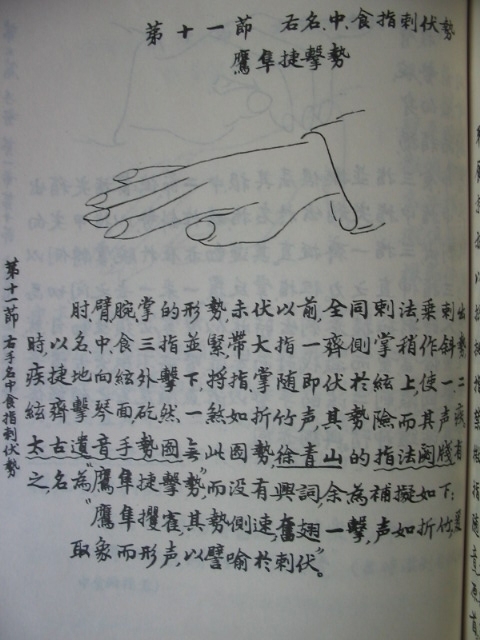 第十一節 右名、中、食指刺伏勢
鷹隼捷擊勢
肘、臂、腕、掌的形勢，未伏以前，全同刺法，乗刺出
時，以名、中、食三指並緊，帶大指一齊側掌稍作斜勢
疾捷地向絃外擊下，將指、掌随即伏於絃上，使一、二
絃齊擊琴面，矻然一煞如折竹声，其勢險而其声疾
太古遺音手勢圖無此圖勢，徐青山的指法闕牋有
之，名為“鷹隼捷擊勢”，而没有興詞，余為補擬如下：
“鷹隼攫雀，其勢側速，奮翅一擊，声如折竹；
取象而形声，以譬喻於刺伏”。
第十一節 右手名中食指刺伏勢